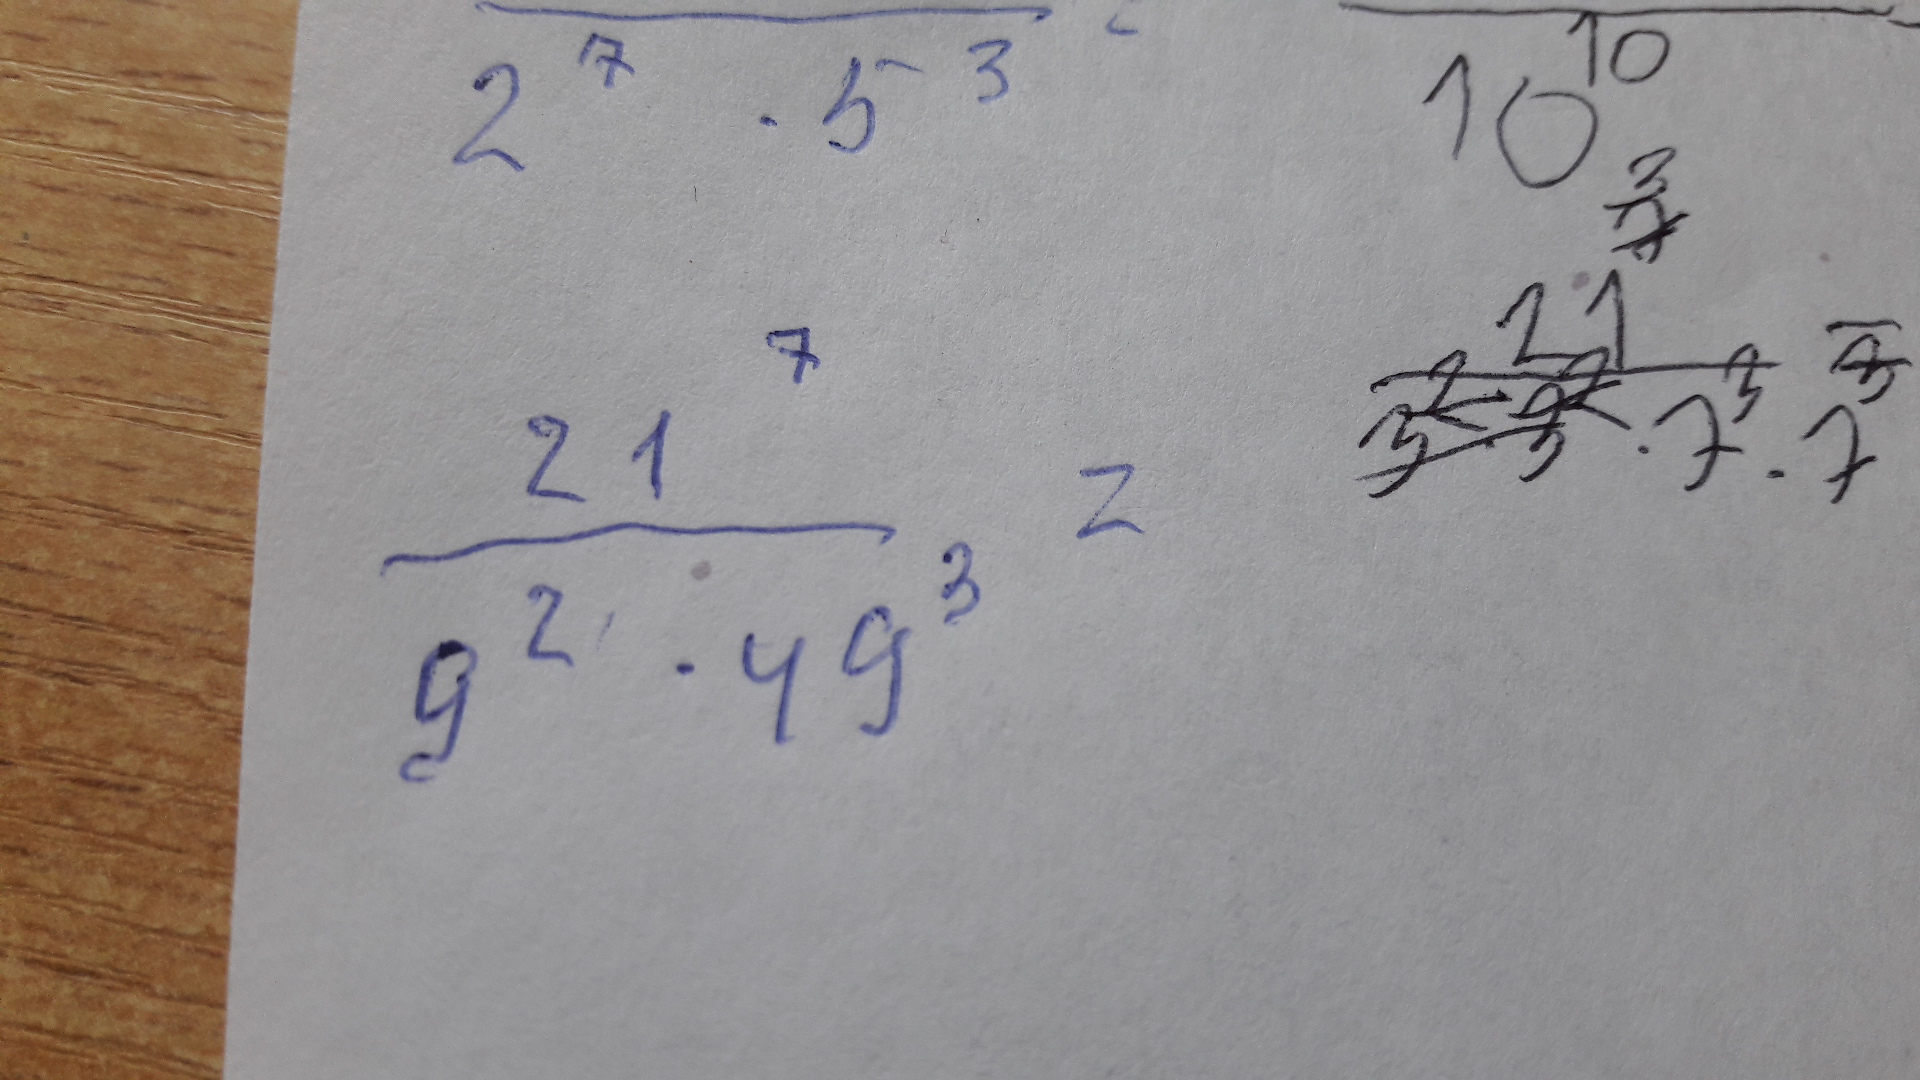 2⁷ · 5³ =
10¹⁰
21⁷
9² · 49³ =
21
· 7³ · 7